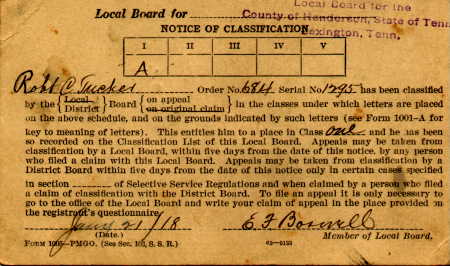 Local Board for
Local Board for the
County of Henderson, State of Tenn
Lexington, Tenn.
NOTICE OF CLASSIFICATION
I II III IV V
A
Robt C. Tucker Order No. 684 Serial No. 1295 has been classified
by the { Local District } Board { on appeal on original claim } in the classes under which letters are placed
on the above schedule, and on the grounds indicated by such letters (see Form 1001-A for
key to meaning of letters). This entitles him to a place in Class one and he has been
so recorded on the Classification List of this Local Board. Appeals may be taken from
classification by a Local Board, within five days from the date of this notice, by any person
who filed a claim with this Local Board. Appeals may be taken from classification by a
District Board within five days from the date of this notice only in certain cases specified
in section of Selective Service Regulations and when claimed by a person who filed
a claim of classification with the District Board. To file an appeal it is only necessary to
go to the office of the Local Board and write your claim of appeal in the place provided on
the registrant's questionnaire
21/18 E. F. Boswell
(Date.) Member of Local Board.
FORM 1005-PMGO. (See Sec. 103, S. S. R.)